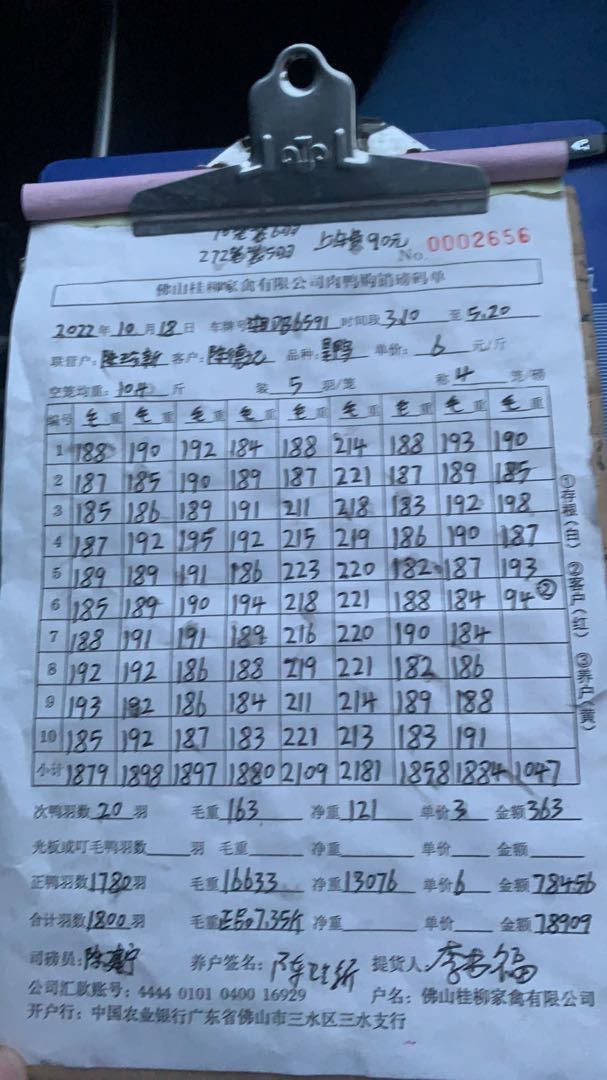 上车鸭90元
No. 0002656
佛山桂柳家禽有限公司肉鸭购销磅码单
2022年10月18日 车牌号 6591 时间段3.10 至5.20
联营户: 客户: 品种: 单价:6元/斤
空笼均重:10.4斤 装5羽/笼 称4笼/磅
编号 毛重 毛重 毛重 毛重 毛重 毛重 毛重 毛重 毛重
1 188 190 192 184 188 214 188 193 190
2 187 185 190 189 187 221 187 189 185
3 185 186 189 191 211 218 183 192 198
4 187 192 195 192 215 219 186 190 187
5 189 189 191 186 223 220 182 187 193
6 185 189 190 194 218 221 188 184 94②
7 188 191 191 189 216 220 190 184
8 192 192 186 188 219 221 182 186
9 193 192 186 184 211 214 189 188
10 185 192 187 183 221 213 183 191
小计 1879 1898 1897 1880 2109 2181 1858 1884 1047
①存根(白) ②客户(红) ③养户(黄)
次鸭羽数20羽 毛重163 净重121 单价3 金额363
光板或叮毛鸭羽数 羽 毛重 净重 单价 金额
正鸭羽数1780羽 毛重16633 净重13076 单价6 金额78456
合计羽数1800羽 毛重 7.35斤 净重 单价 金额78909
司磅员: 养户签名: 提货人:
公司汇款账号:4444 0101 0400 16929 户名:佛山桂柳家禽有限公司
开户行:中国农业银行广东省佛山市三水区三水支行